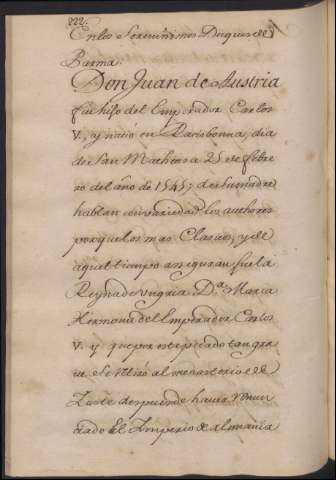 222.
En los Serenissimos Duques de
Parma.
Don Juan de Austria
fue hijo del Emperador Carlos
V. y nació en Ratisbonna, dia
de San Matheos a 25 de febre
ro del año de 1545; de su madre
hablan con variedad los authores
porque los mas Clasicos, y de
aquel tiempo aseguran fue la
Reyna de Ungria D.ª Maria
Hermana del Emperador Carlos
V. y que por este pecado tan gra
ve se retiró al monasterio de
Zuste despues de haver renun
ciado el Imperio de Alemania